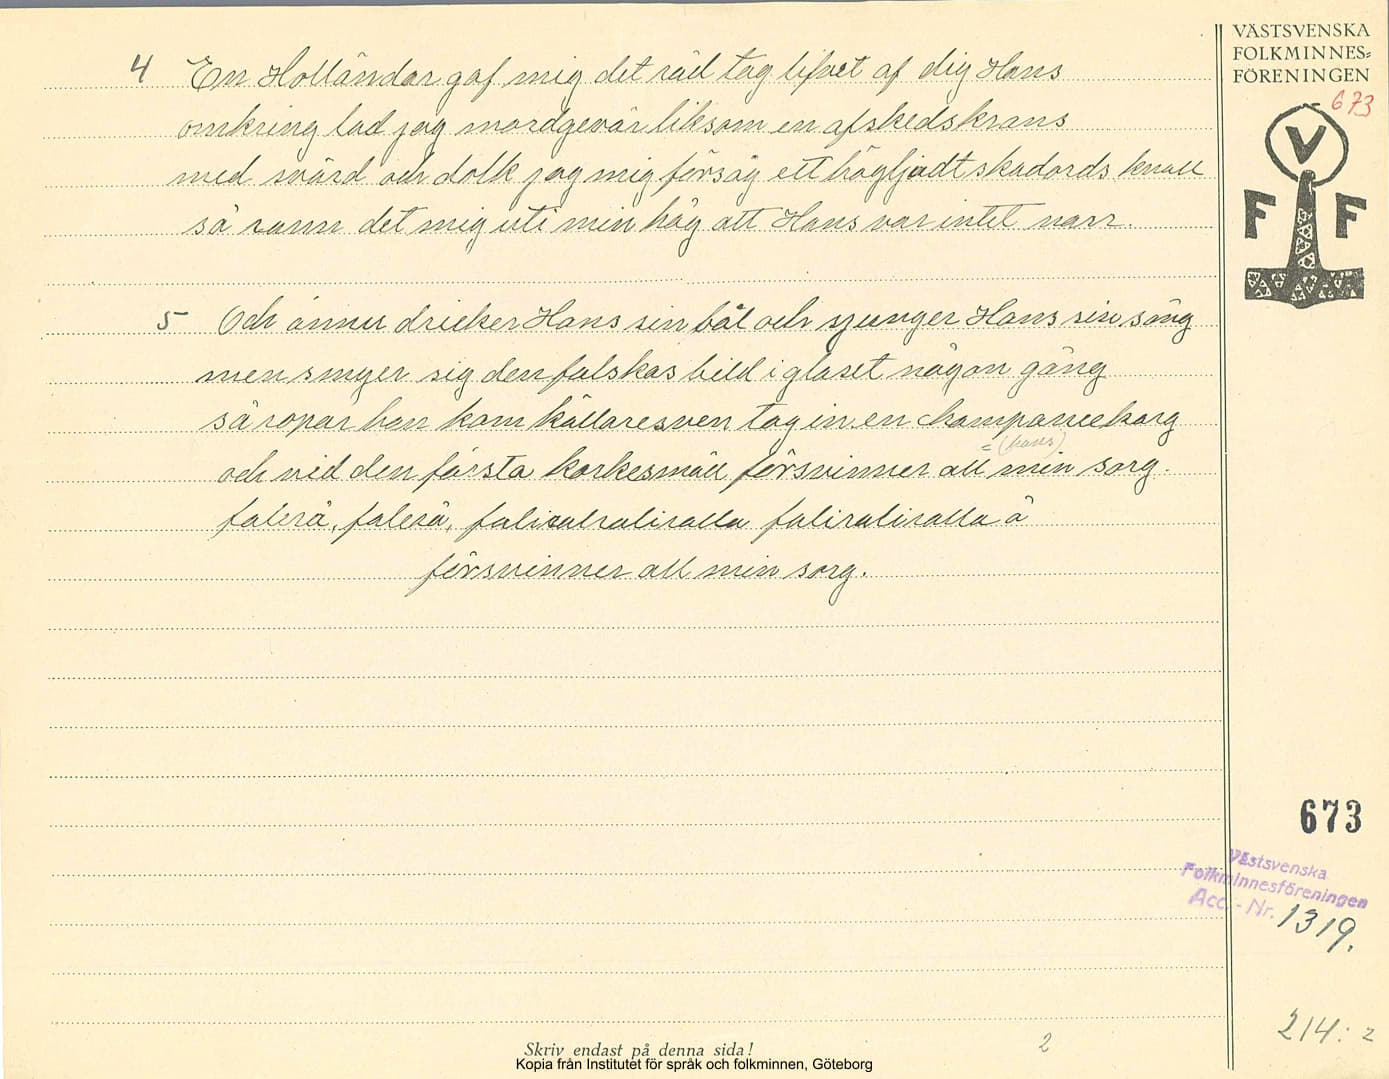 VÄSTSVENSKA
FOLKMINNES=
FÖRENINGEN
673
V
F F
4 En Holländar gaf mig det råd tag lifvet af dig Hans
omkring lad jag mordgevär liksom en afskedskrans
med svärd och dolk jag mig försåg ett högljudt skadords knall
så rann det mig uti min håg att Hans var intet narr.
5 Och ännu dricker Hans sin bål och sjunger Hans sin sång
men smyer sig den falskas bild i glaset någon gång
så ropar han kom källaresven tag in en kompanie korg
= (hans)
och vid den första korkesmäll försvinner all min sorg.
falerå, falerå, faliralraliralla faliraliralla å
försvinner all min sorg.
673
Västsvenska
Folkminnesföreningen
Acc.-Nr. 1319.
214:2
2
Skriv endast på denna sida!
Kopia från Institutet för språk och folkminnen, Göteborg